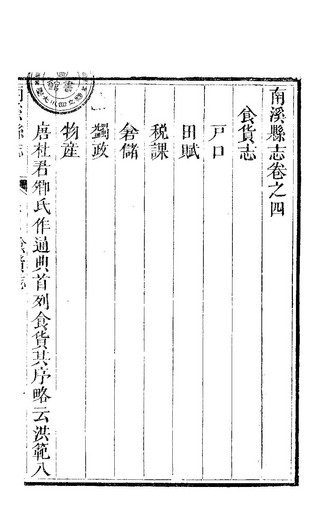 南溪縣志卷之四
食貨志
戸口
田賦
税課
倉儲
蠲政
物産
唐杜君卿氏作通典首列食貨其序略云洪範八
南溪縣志
食貨志